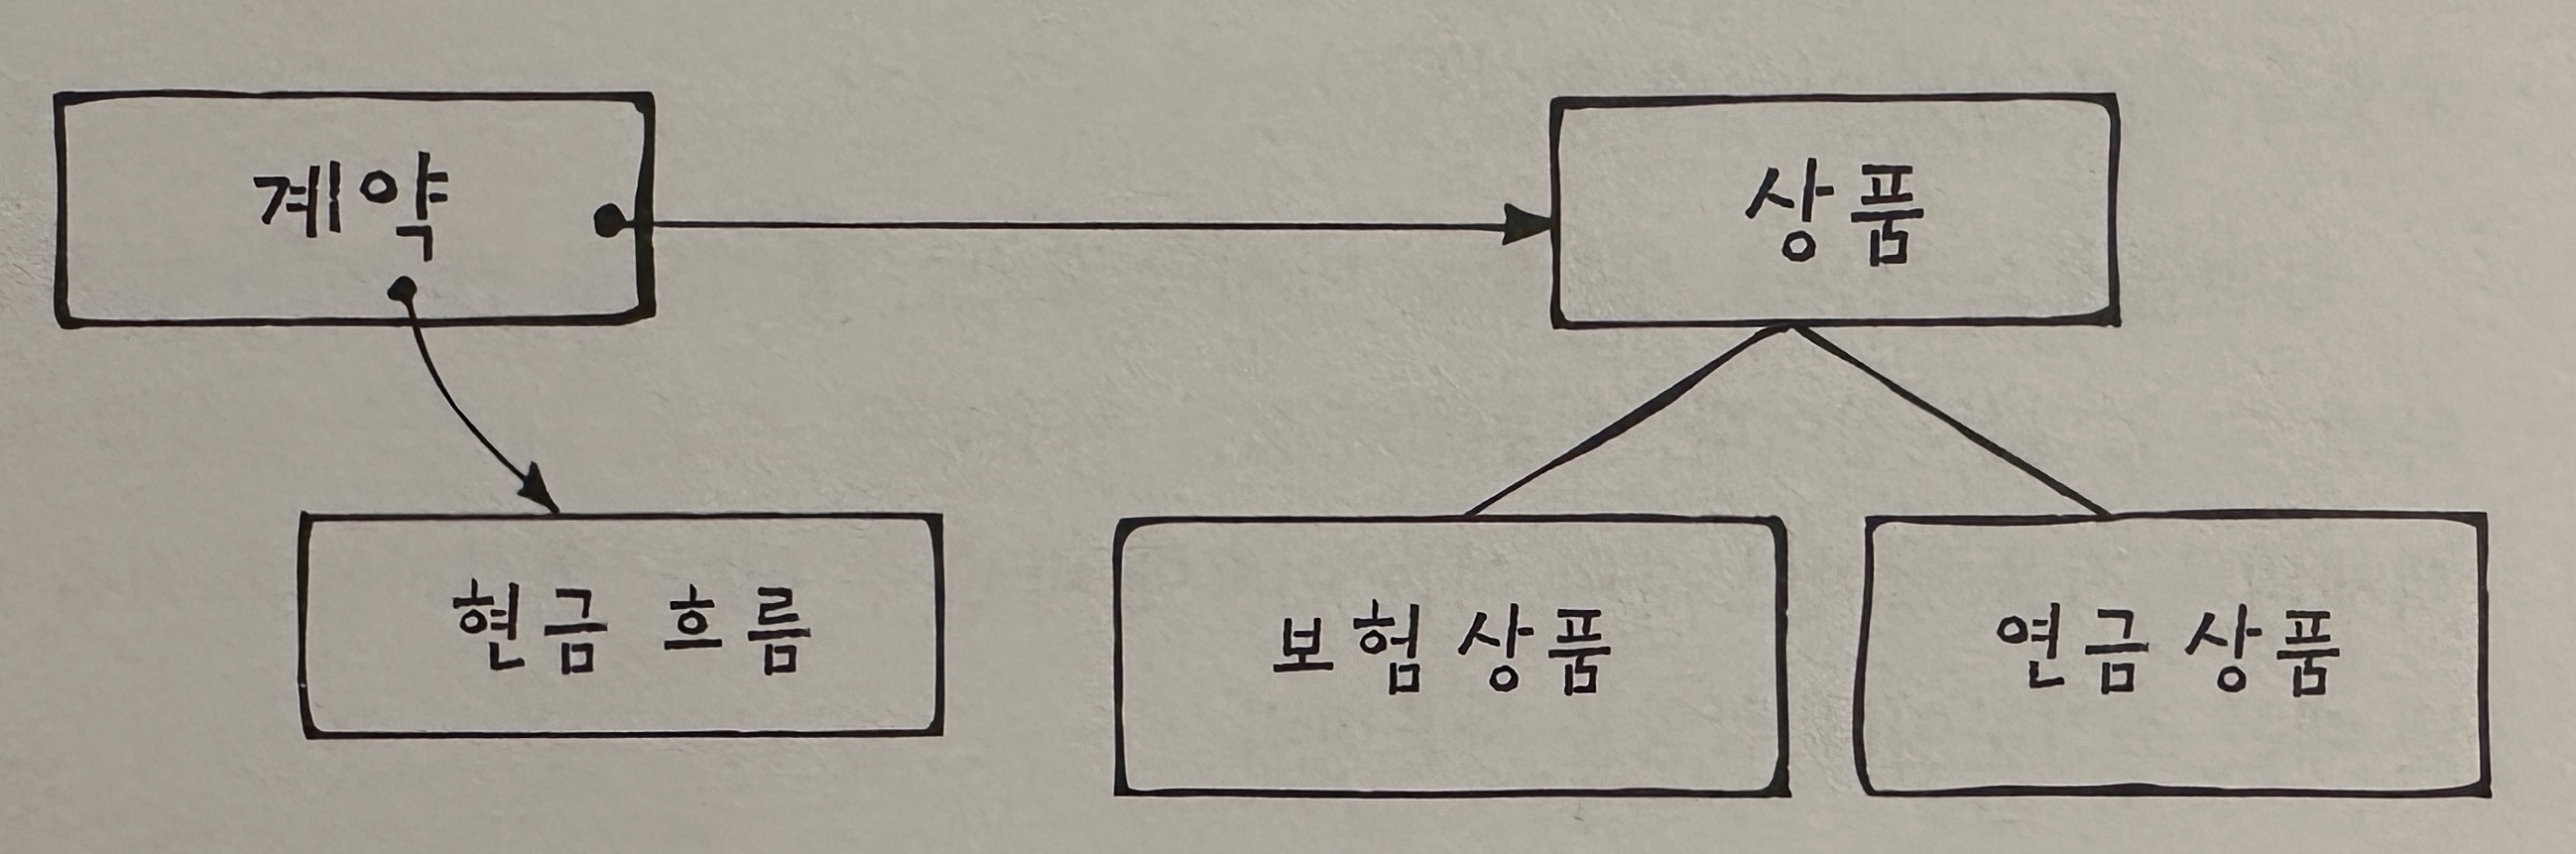 계약
상품
현금 흐름
보험상품
연금상품